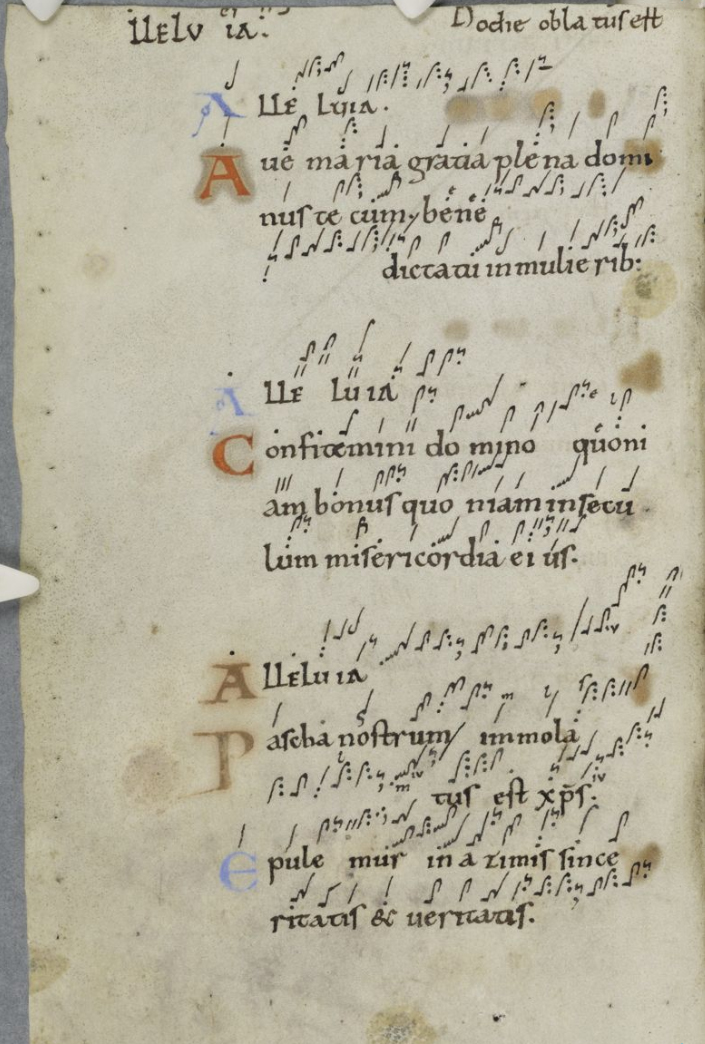 lleluia. Hodie oblatus est
Alleluia.
Aue maria gratia plena domi
nus tecum, bene
dicta tu in mulierib:
Alleluia
Confitemini domino quoni
am bonus quoniam insecu
lum misericordia eius.
Alleluia
Pascha nostrum immola
tus est xp̄s.
Epulemur in azimis since
ritatis & ueritatis.